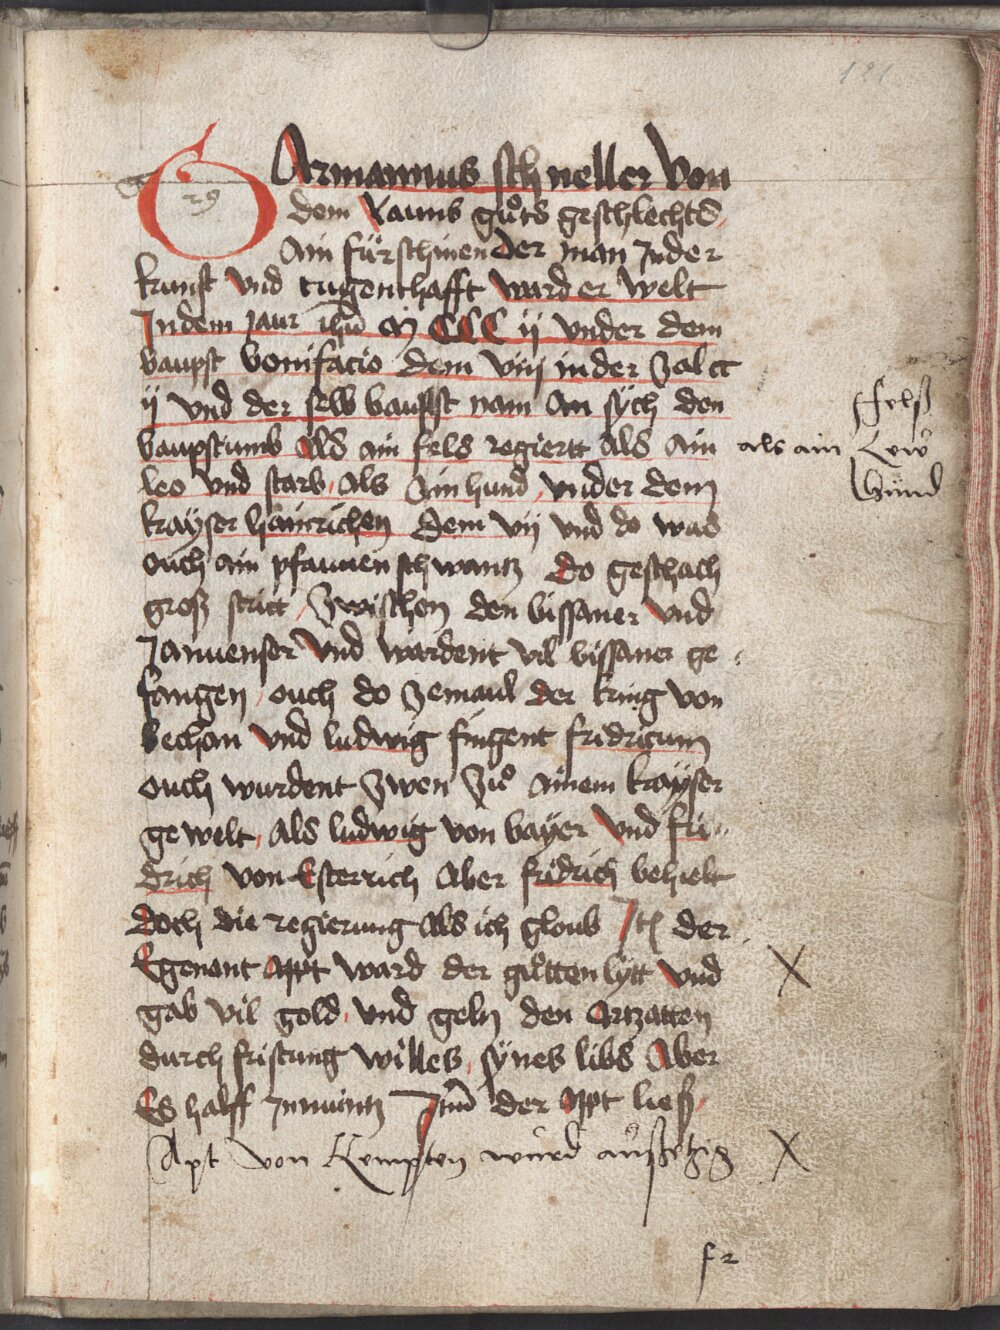 121
29
Armannus schneller Von
dem Raums gůts geschlechts
Ain fürschinender man Inder
kunst Vnd tugenthafft ward er welt
Indem Jaur ihū M CCC ij Vnder dem
baupst bonifacio dem Viij in der Zal ct
ij Vnd der selb baupst nam An sych den
baupstumb Als ain fels regiertt Als Ain
leo Vnd starb Als Ain hund Vnder dem
krayser hainrichen dem Vij Vnd do was
ouch ain pfauuen schwantz do geschach
groß stritt Zwischen den bissaner Vnd
Januenser Vnd wardent Vil bissaner ge
fangen ouch do Zemaul der kring Von
bechan Vnd ludwig fingent fridricum
ouch wurdent Zwen Zů ainem krayser
gewelt Als ludwig Von bayer Vnd fri
drich Von Esterrich Aber fridrich behielt
doch die regierung Als ich gloub Itē der
Egenant Appt ward der gůtten lytt Vnd
gab Vil gold Vnd geln den Artzatten
durch fristung willes synes libs Aber
Es halff Inniüntz Itm̄ der Appt ließ
Apt von Kempten würd außsetzig
als ain
felß
Lew
Hünd
f2